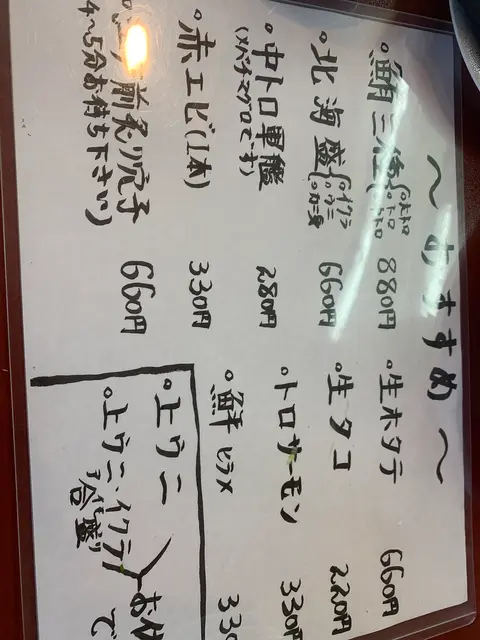 〜おすすめ〜
。鮪三種 。大トロ 。中トロ 880円
。北海盛 。イクラ 。ウニ 。カニ身 660円
。中トロ軍艦 280円
(メバチマグロです)
。赤エビ(1本) 330円
前炙り穴子 660円
4〜5分お待ち下さい)
。生ホタテ 660円
。生タコ 220円
。トロサーモン 330円
。鮮ヒラメ 330
。上ウニ
。上ウニ・イクラ
合盛り